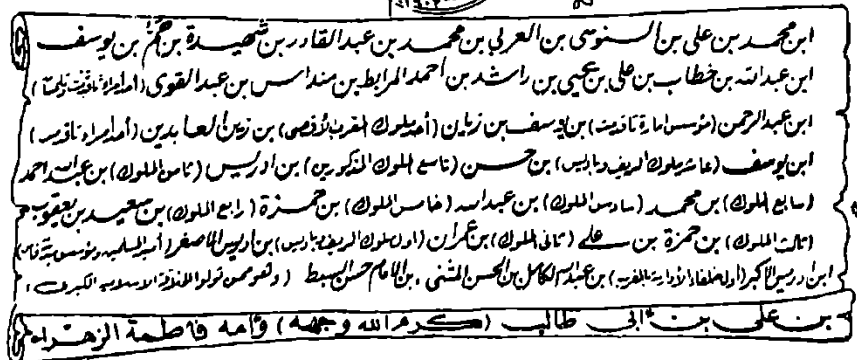 ابن محمد بن علي بن السنوسي بن العربي بن محمد بن عبد القادر بن شهيدة بن حم بن يوسف
ابن عبد الله بن خطاب بن علي بن يحيى بن راشد بن أحمد المرابط بن منداس بن عبد القوي (أمد امراء تاقدمت تاهرت)
ابن عبد الرحمن (مؤسس امارة تاقدمت) بن يوسف بن زيان (أحد ملوك المغرب الأقصى) بن زين العابدين (أحد امراء تاقدمت)
ابن يوسف (عاشر ملوك الريف وباديس) بن حسن (تاسع الملوك المذكورين) بن ادريس (ثامن الملوك) بن عبد الله احمد
(سابع الملوك) بن محمد (سادس الملوك) بن عبد الله (خامس الملوك) بن حمزة (رابع الملوك) بن سعيد بن يعقوب
(ثالث الملوك) بن حمزة بن علي (ثاني الملوك) بن عمران (أول ملوك الريف وباديس) بن ادريس الأصغر (أمير المسلمين ومؤسس مدينة فاس)
ابن ادريس الأكبر (أول خلفاء الأدارسة بالمغرب) بن عبد الله الكامل بن الحسن المثنى بن الامام حسن السبط (وهو ممن تولوا الخلافة الاسلامية الكبرى)
بن علي بن أبي طالب (كرم الله وجهه) وأمه فاطمة الزهراء